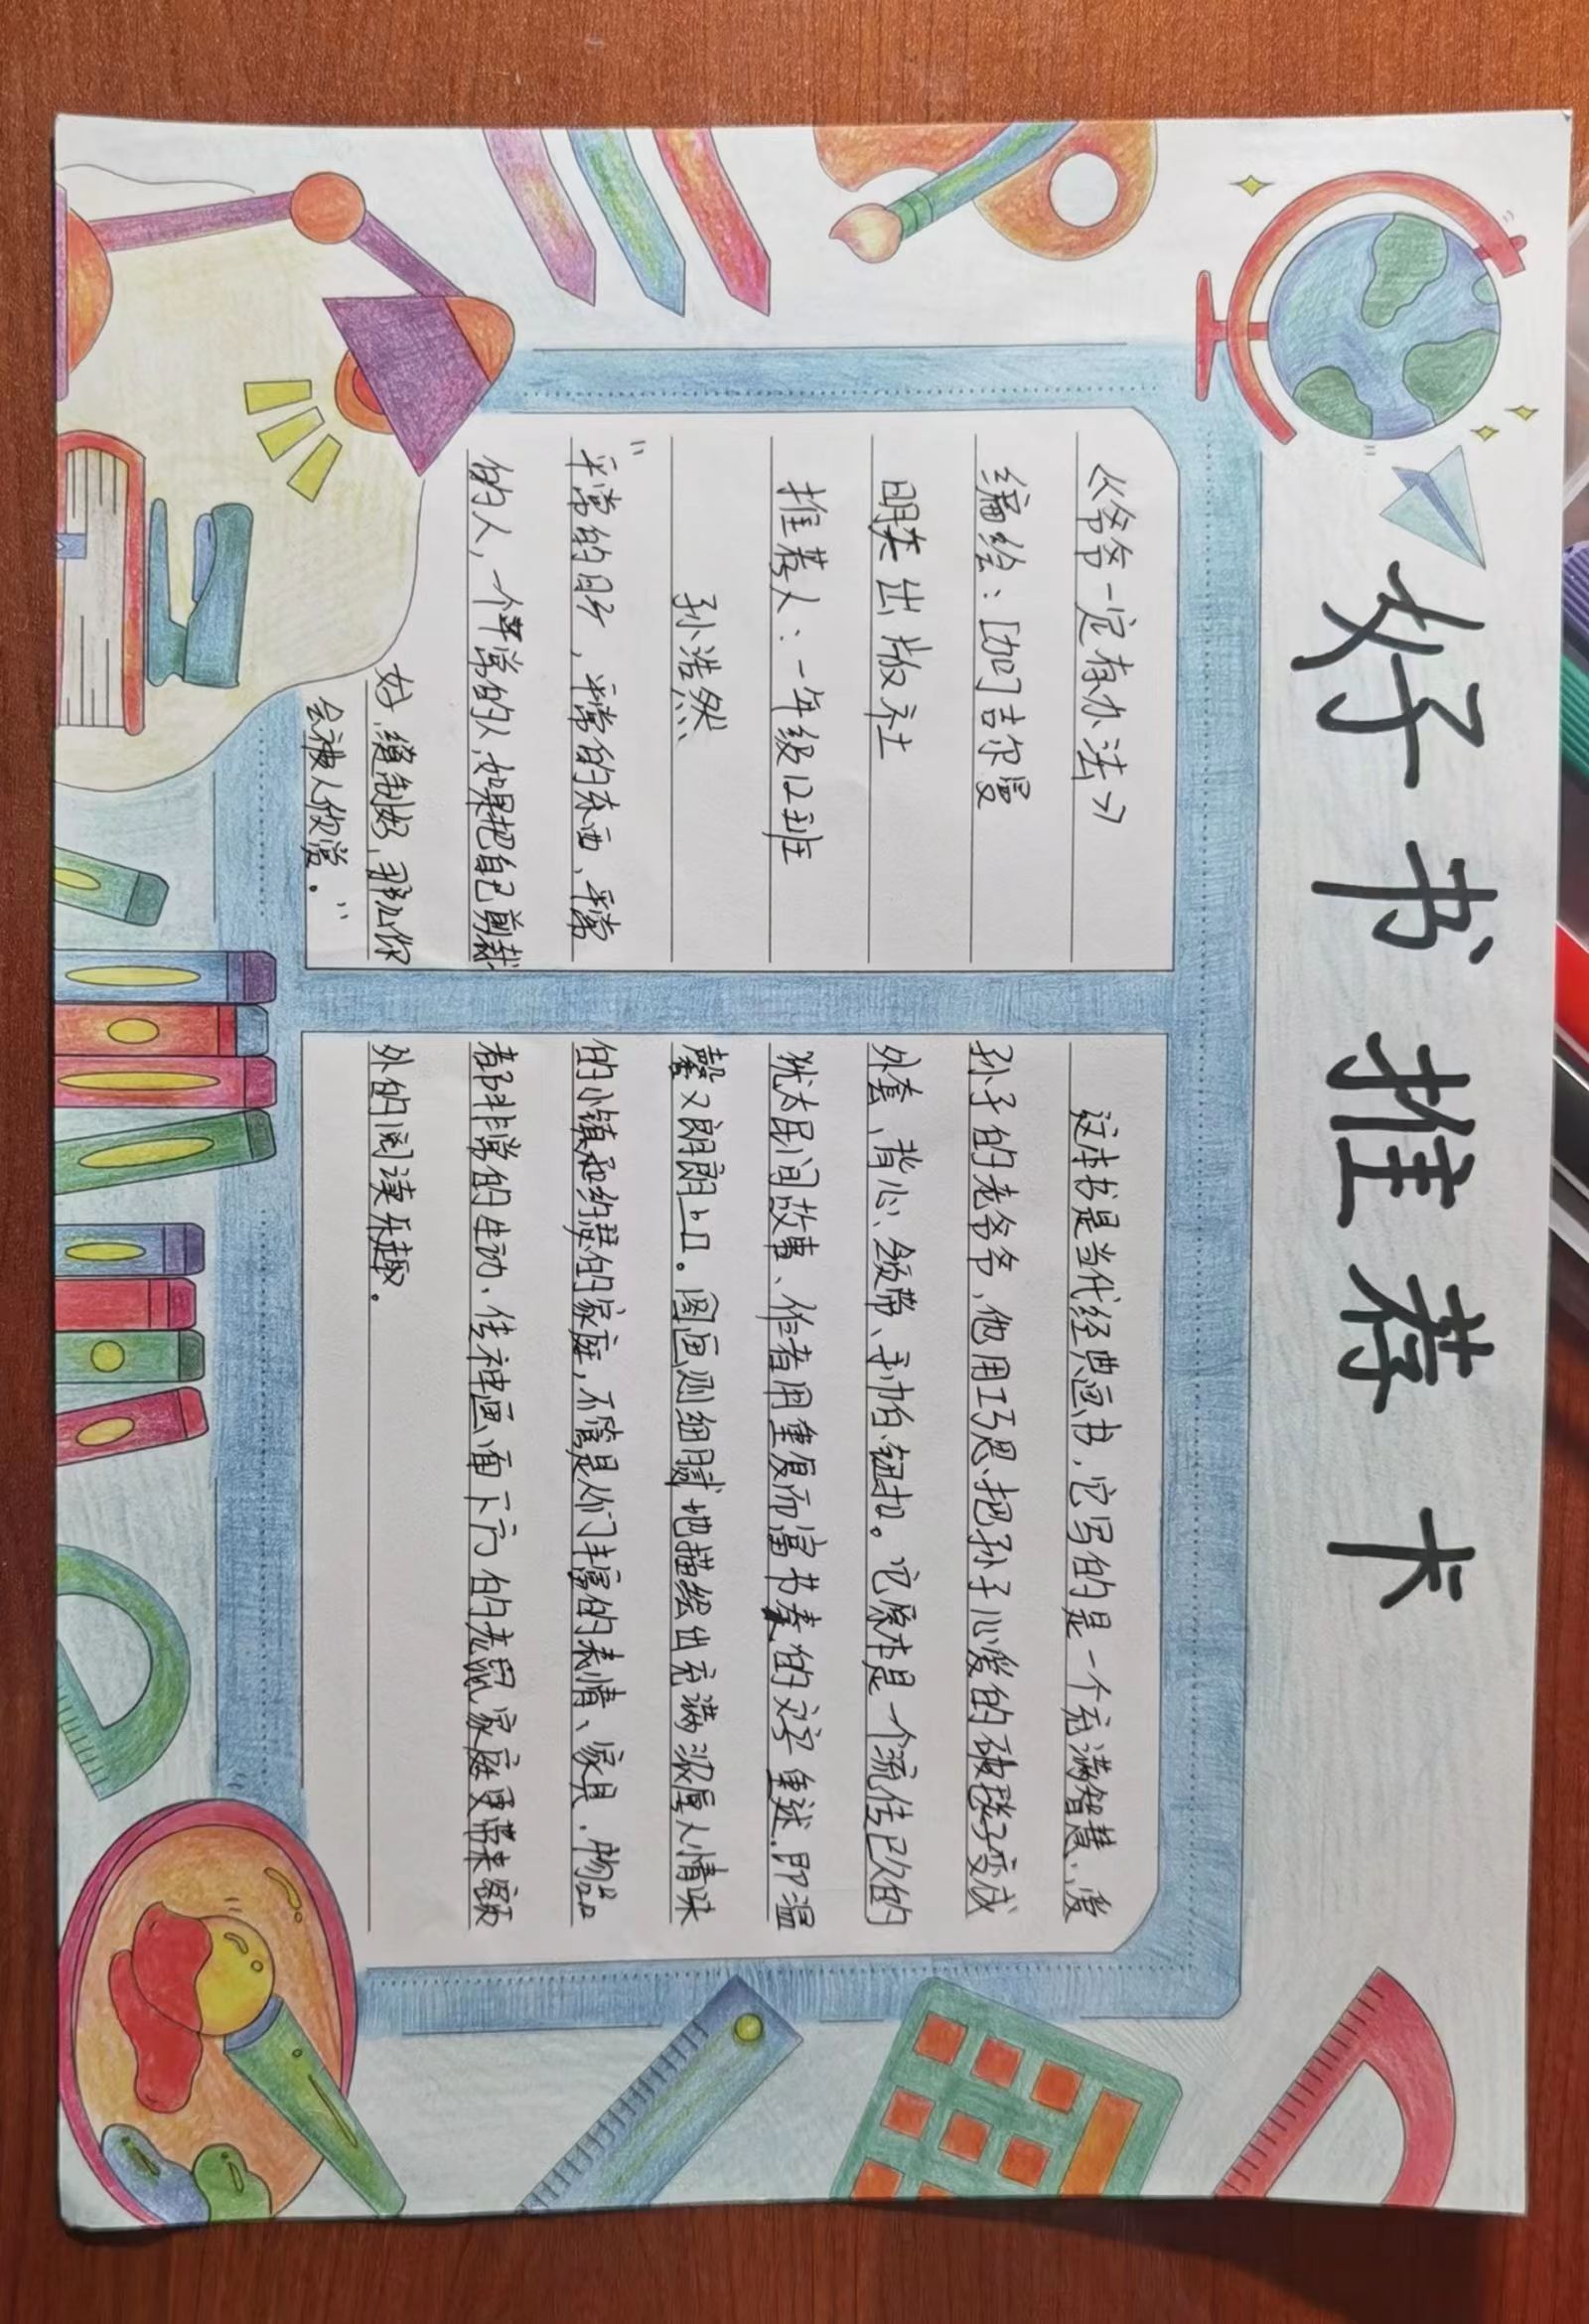 好书推荐卡
《爷爷一定有办法》
编绘：[加]吉尔曼
明天出版社
推荐人：一年级12班
孙浩然
"平常的日子，平常的东西、平常
的人，一个平常的人，如果把自己剪裁
好，缝制好，那么你
会被人欣赏。"
这本书是当代经典画书，它写的是一个充满智慧、爱
孙子的老爷爷，他用巧思、把孙子心爱的破毯子变成
外套、背心、领带、手帕、钮扣。它原本是一个流传已久的
犹太民间故事、作者用重复而富节奏的文字重述，即温
馨又朗朗上口。图画则细腻地描绘出充满浓厚人情味
的小镇和约瑟的家庭，不管是人们丰富的表情、家具、物品
都非常的生动、传神画面下方的老鼠家庭更带来额
外的阅读乐趣。